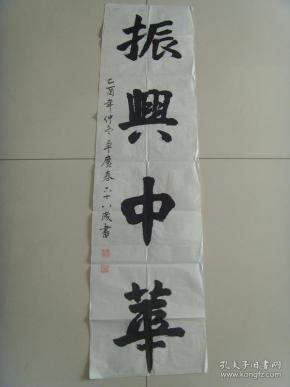 振興中華
乙酉年仲冬 平慶春六十八歲書
孔夫子旧书网